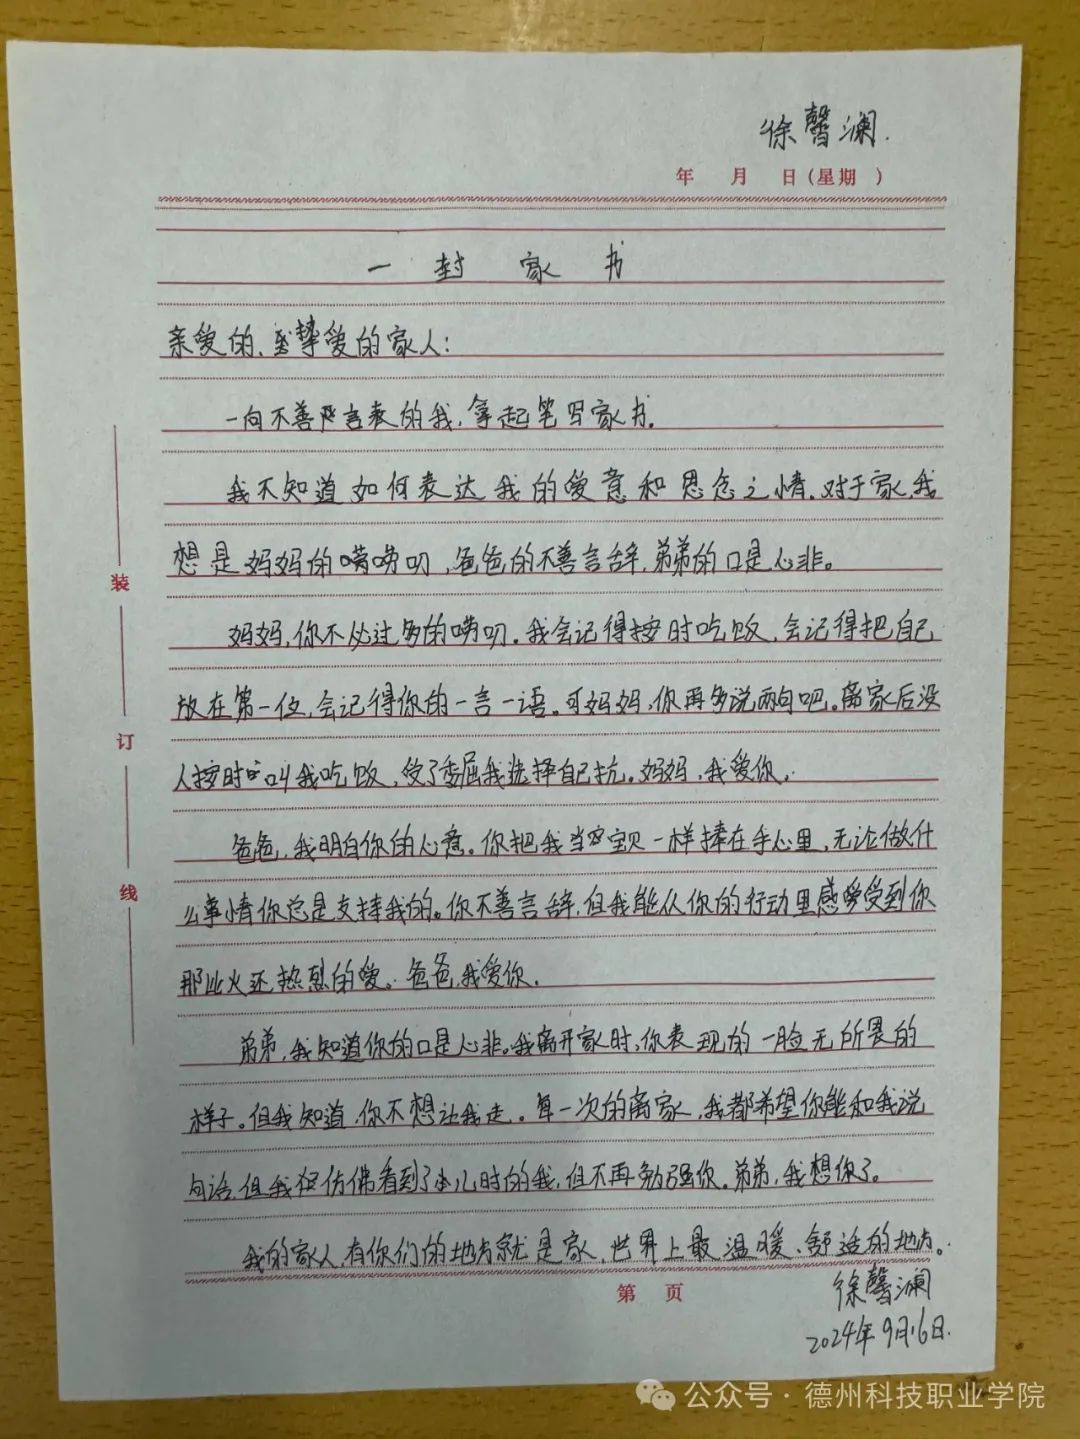 徐馨澜.
年 月 日(星期 )
一封家书
亲爱的、至挚爱的家人:
一向不善于言表的我,拿起笔写家书。
我不知道如何表达我的爱意和思念之情。对于家,我
想是妈妈的唠唠叨,爸爸的不善言辞,弟弟的口是心非。
妈妈,你不必过多的唠叨。我会记得按时吃饭,会记得把自己
放在第一位,会记得你的一言一语。可妈妈,你再多说两句吧。离家后没
人按时叫我吃饭,受了委屈我选择自己抗。妈妈,我爱你。
爸爸,我明白你的心意。你把我当宝贝一样捧在手心里,无论做什
么事情你总是支持我的。你不善言辞,但我能从你的行动里感受到你
那比火还热烈的爱。爸爸,我爱你.
弟弟,我知道你的口是心非。我离开家时,你表现的一脸无所畏的
样子。但我知道,你不想让我走。每一次的离家,我都希望你能和我说
句话,但我仿佛看到了小儿时的我,但不再勉强你。弟弟,我想你了。
我的家人,有你们的地方就是家,世界上最温暖、舒适的地方。
第 页
徐馨澜
2024年9月16日.
装
订
线
公众号·德州科技职业学院